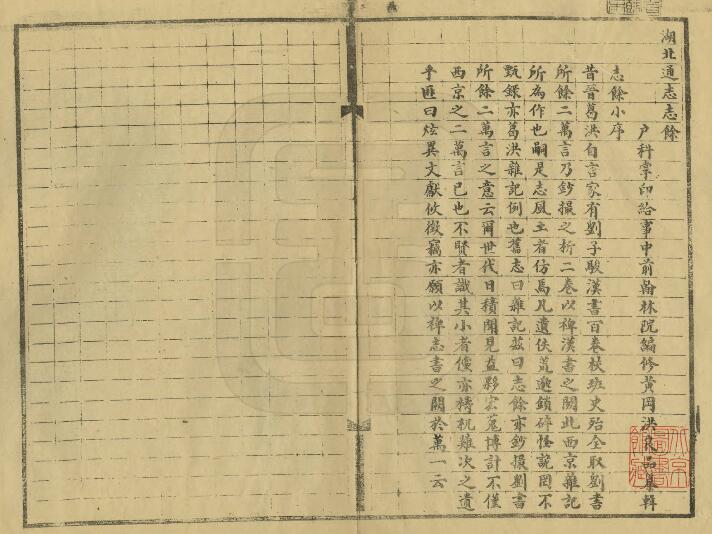 湖北通志志餘
户科掌印給事中前翰林院編修黃岡洪良品纂輯
志餘小序
昔晉葛洪自言家有劉子駿漢書百卷校班史殆全取劉書
所餘二萬言乃鈔撮之析二卷以裨漢書之闕此西京雜記
所為作也嗣是志風土者仿焉凡遺佚荒邈鎖碎怪說罔不
甄錄亦葛洪雜記例也舊志曰雜記茲曰志餘亦鈔撮劉書
所餘二萬言之意云爾世代日積聞見益夥宏蒐博計不僅
西京之二萬言已也不賢者識其小者儻亦檮杌雜次之遺
乎匪曰炫異文獻攸徵竊亦願以裨志書之闕於萬一云